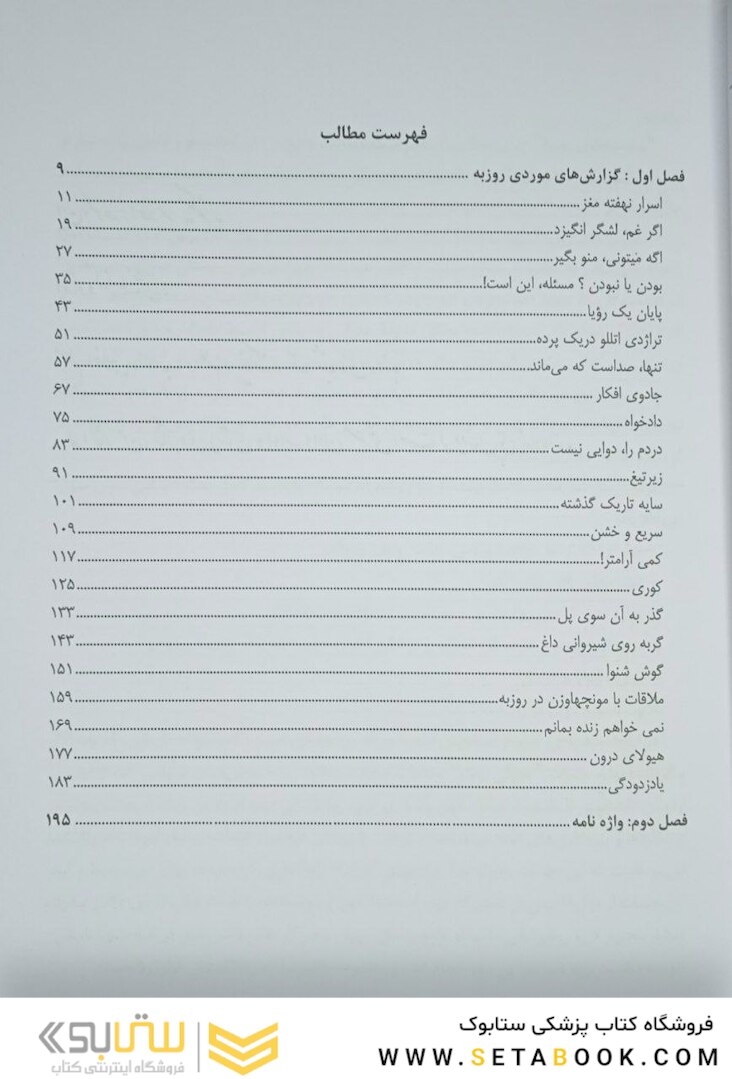 فهرست مطالب
فصل اول : گزارش‌های موردی روزبه ........ ۹
اسرار نهفته مغز ........ ۱۱
اگر غم، لشگر انگیزد ........ ۱۹
اگه میتونی، منو بگیر ........ ۲۷
بودن یا نبودن ؟ مسئله، این است! ........ ۳۵
پایان یک رؤیا ........ ۴۳
تراژدی اتللو دریک پرده ........ ۵۱
تنها، صداست که می‌ماند ........ ۵۷
جادوی افکار ........ ۶۷
دادخواه ........ ۷۵
دردم را، دوایی نیست ........ ۸۳
زیرتیغ ........ ۹۱
سایه تاریک گذشته ........ ۱۰۱
سریع و خشن ........ ۱۰۹
کمی آرامتر! ........ ۱۱۷
کوری ........ ۱۲۵
گذر به آن سوی پل ........ ۱۳۳
گربه روی شیروانی داغ ........ ۱۴۳
گوش شنوا ........ ۱۵۱
ملاقات با مونچهاوزن در روزبه ........ ۱۵۹
نمی خواهم زنده بمانم ........ ۱۶۹
هیولای درون ........ ۱۷۷
یادزدودگی ........ ۱۸۳
فصل دوم: واژه نامه ........ ۱۹۵
فروشگاه کتاب پزشکی ستابوک
WWW.SETABOOK.COM
ستابوک
فروشگاه اینترنتی کتاب